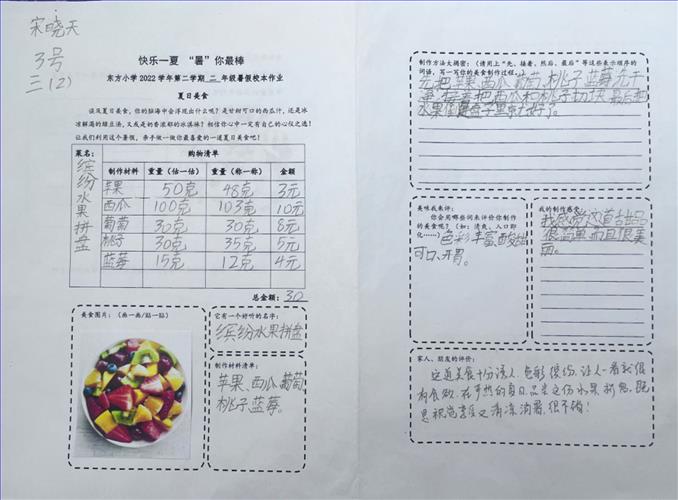 宋晓天
3号
三(2)
快乐一夏 “暑”你最棒
东方小学2022学年第二学期二年级暑假校本作业
夏日美食
说起夏日美食，你的脑海中会浮现出什么呢？是甘甜可口的西瓜汁，还是冰
凉解渴的绿豆汤，又或是奶香浓郁的冰淇淋？相信你心中一定有自己的心仪之选！
让我们利用这个暑假，亲手做一做你最喜爱的一道夏日美食吧！
菜名：缤纷水果拼盘
购物清单
制作材料 重量（估一估） 重量（称一称） 金额
苹果 50克 48克 3元
西瓜 100克 103克 10元
葡萄 30克 30克 8元
桃子 30克 35克 5元
蓝莓 15克 12克 4元
总金额：30
美食图片：（画一画/贴一贴）
它有一个好听的名字：
缤纷水果拼盘
制作材料清单：
苹果、西瓜、葡萄
桃子、蓝莓。
制作方法大揭密：（请用上“先、接着、然后、最后”等这些表示顺序的
词语，写一写你的美食制作过程。）
先把苹果西瓜葡萄桃子蓝莓洗干
接着把西瓜和桃子切块最后把
水果
美味我来评：
你会用哪些词来评价你制作
的美食呢？（如：清爽、入口即
化……）色彩丰富、酸甜
可口、开胃。
我的制作感受：
我感觉这道甜品
很简单而且很美
丽。
家人、朋友的评价：
这道美食十分诱人，色彩缤纷，让人一看就很
有食欲。在炎热的夏日，品尝这份水果拼盘，既
是视觉享受又清凉消暑，很不错！